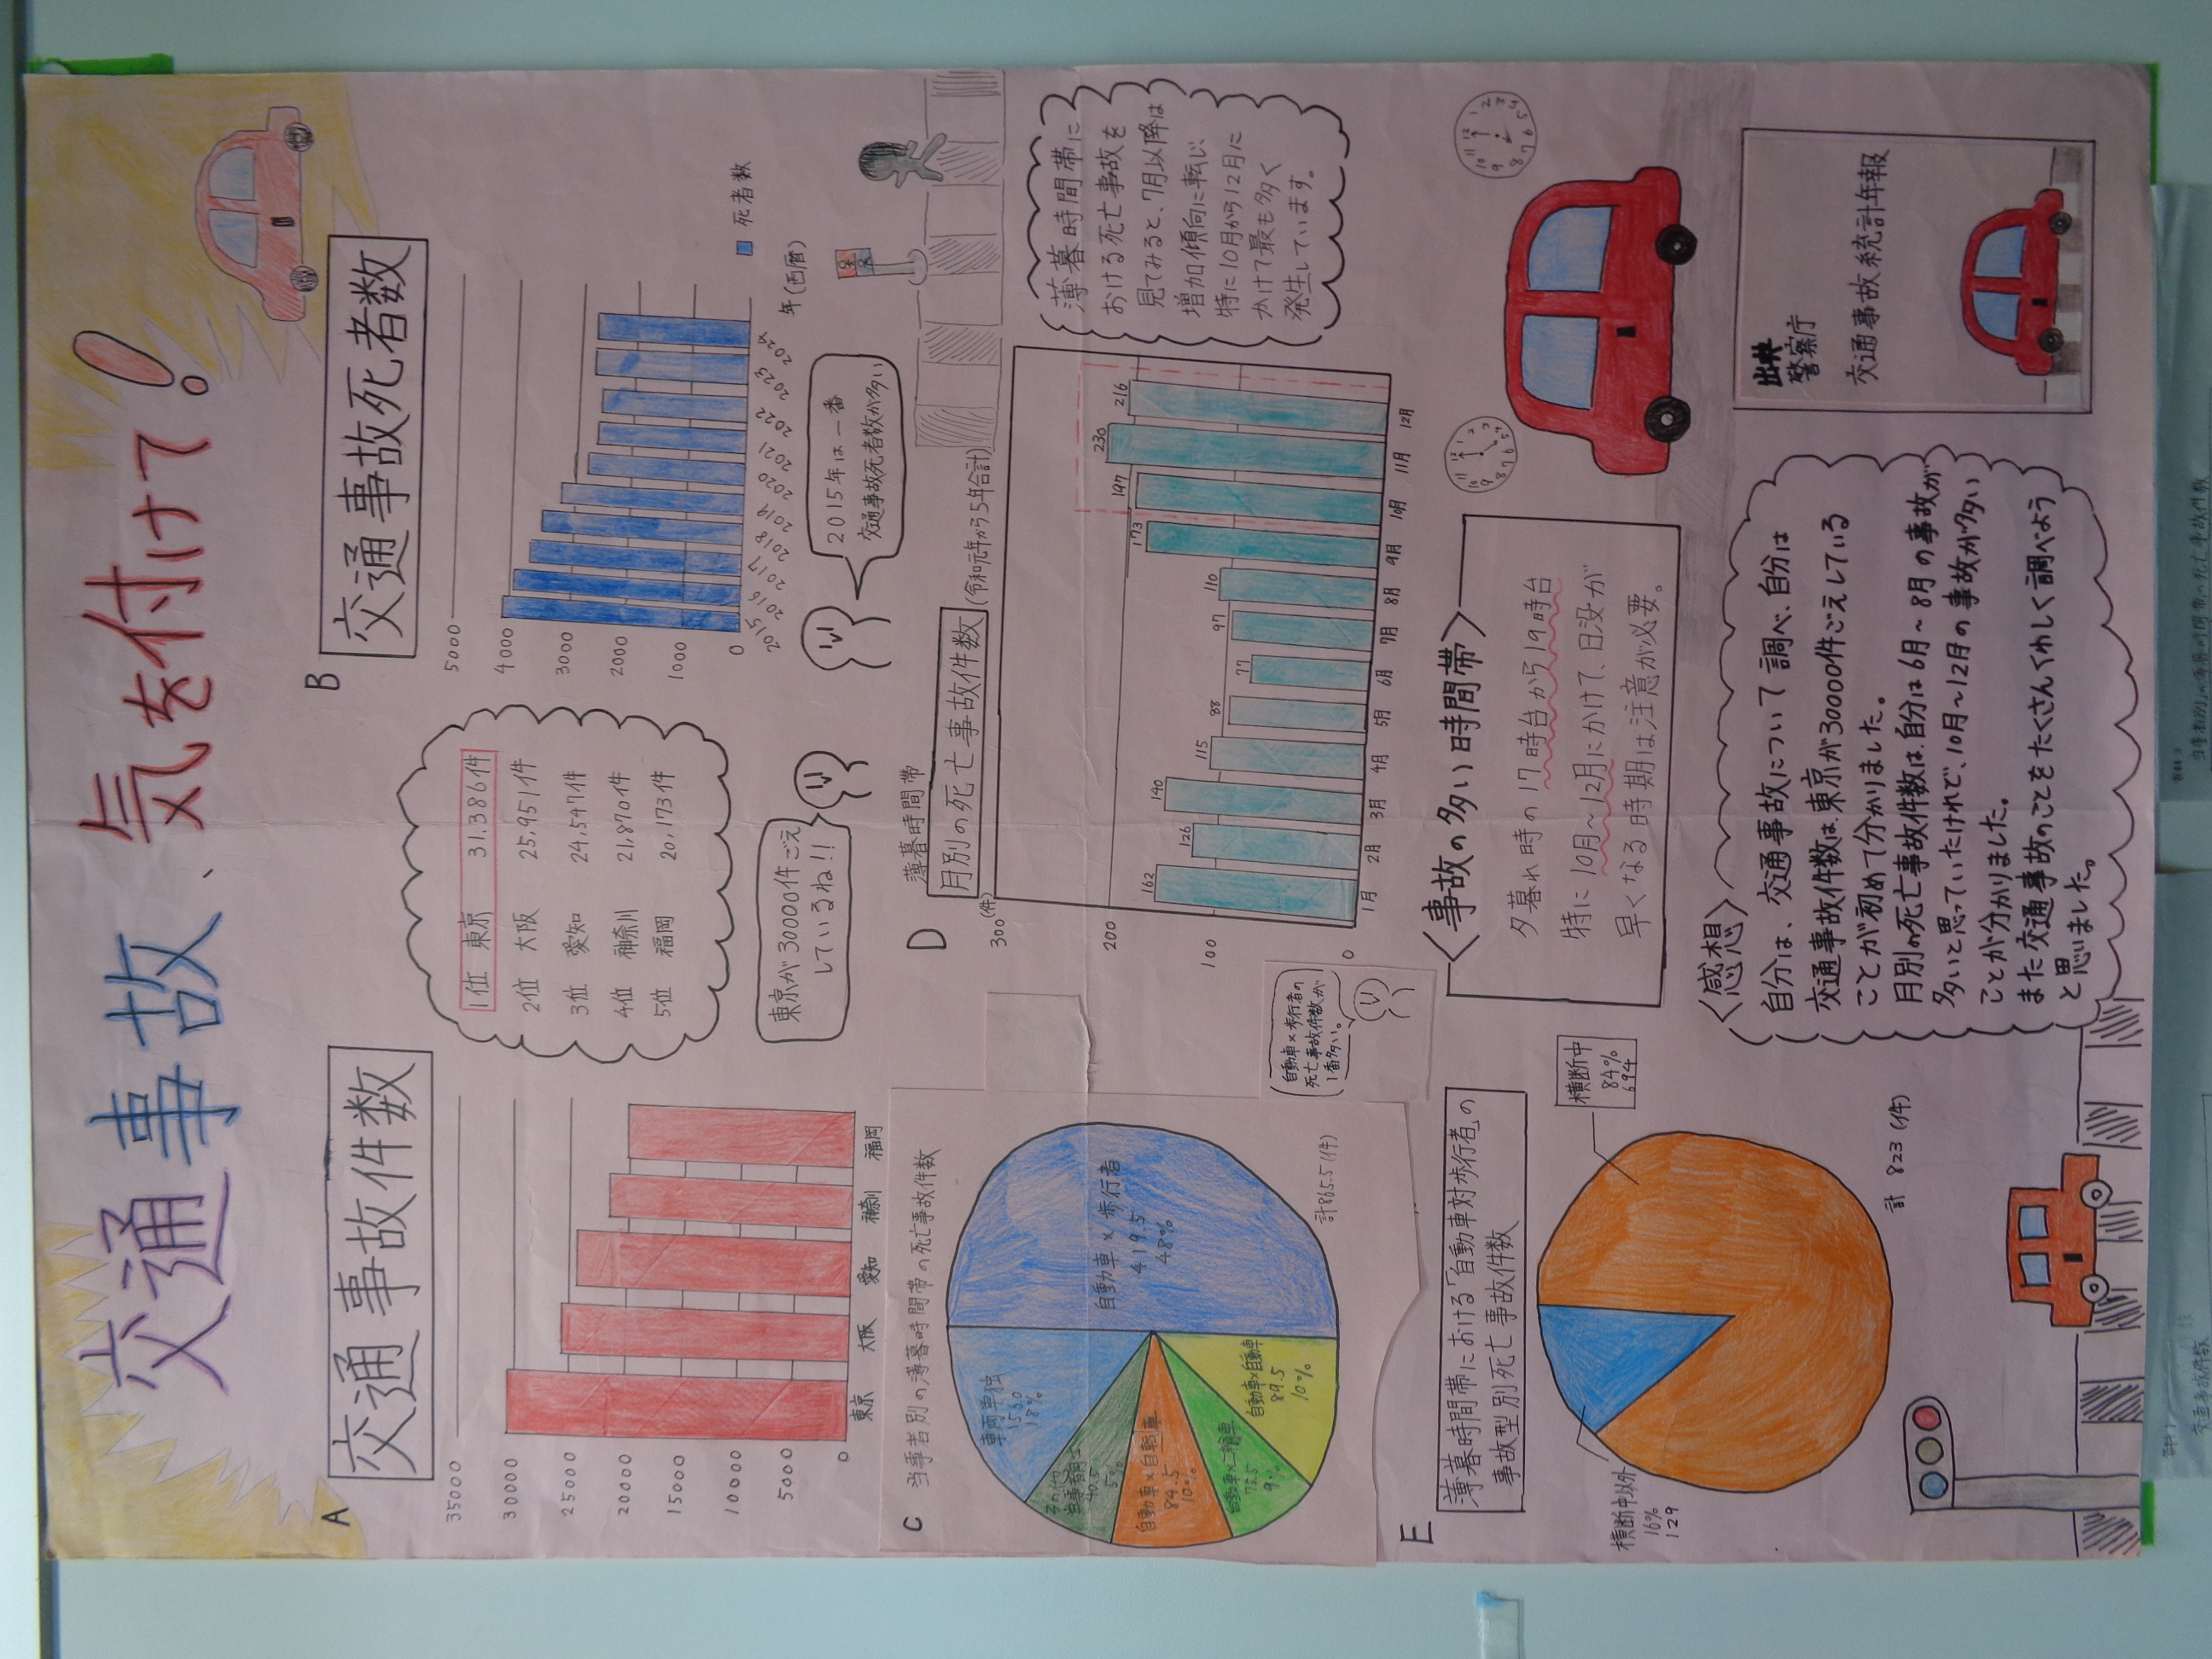 交通事故、気を付けて!
A
交通事故件数
35000
30000
25000
20000
15000
10000
5000
0
東京 大阪 愛知 神奈川 福岡
1位 東京 31.386件
2位 大阪 25,951件
3位 愛知 24,547件
4位 神奈川 21,870件
5位 福岡 20,173件
東京が30000件ごえ
しているね!!
B
交通事故死者数
5000
4000
3000
2000
1000
0
2015 2016 2017 2018 2019 2020 2021 2022 2023 2024
年(西暦)
死者数
2015年は一番
交通事故死者数が多い
C
当事者別の薄暮時間帯の死亡事故件数
自動車×歩行者
419.5
48%
自動車×自動車
89.5
10%
自動車×二輪車
75.5
9%
自動車×自転車
84.5
10%
当事者同士
40.5
5%
車両単独
156.0
18%
計865.5(件)
自動車×歩行者の
死亡事故件数が
1番多い。
D
薄暮時間帯
月別の死亡事故件数(令和元年から5年合計)
300(件)
200
100
0
162 126 140 115 88 77 97 110 173 197 230 216
1月 2月 3月 4月 5月 6月 7月 8月 9月 10月 11月 12月
薄暮時間帯に
おける死亡事故を
見てみると、7月以降は
増加傾向に転じ
特に10月から12月に
かけて最も多く
発生しています。
E
薄暮時間帯における「自動車対歩行者」の
事故型別死亡事故件数
横断中
84%
694
横断中以外
16%
129
計 823(件)
<事故の多い時間帯>
夕暮れ時の17時台から19時台
特に10月~12月にかけて、日没が
早くなる時期は注意が必要。
<感想>
自分は、交通事故について調べ、自分は
交通事故件数は、東京が30000件ごえしている
ことが初めて分かりました。
月別の死亡事故件数は、自分は6月~8月の事故が
多いと思っていたけれど、10月~12月の事故が多い
ことが分かりました。
また交通事故のことをたくさんくわしく調べよう
と思いました。
出典
警察庁
交通事故統計年報